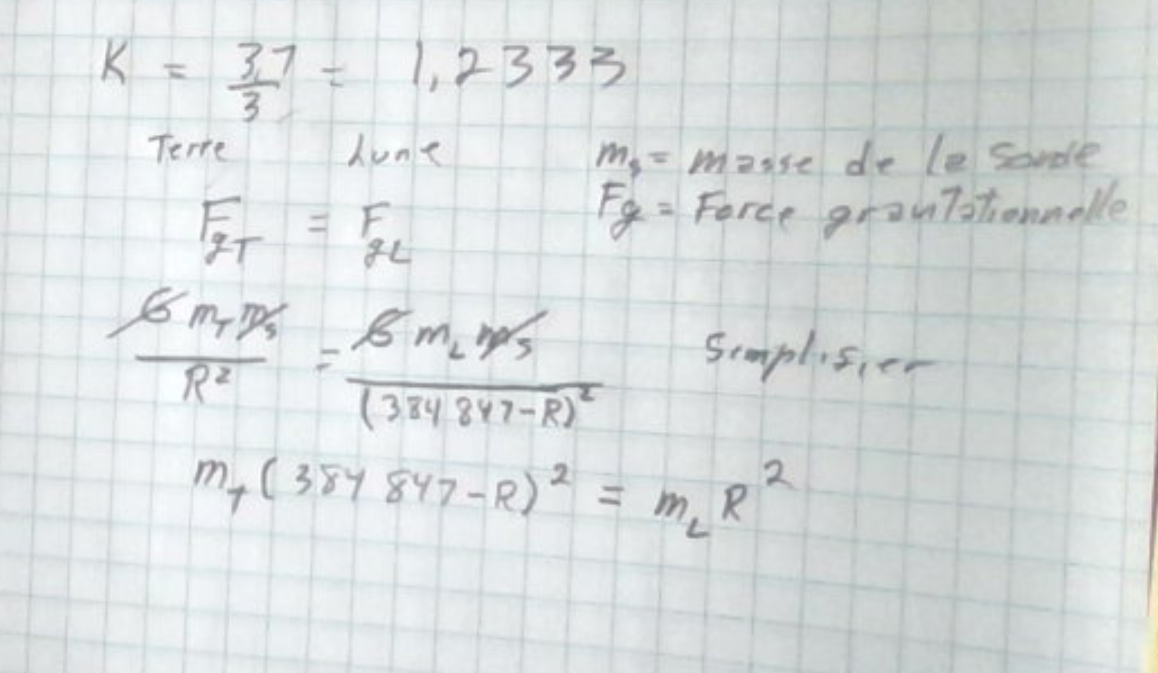 K = 3,7/3 = 1,2333
Terre Lune m_s = masse de la sonde
F_gT = F_gL Fg = Force gravitationnelle
G m_T m_s / R² = G m_L m_s / (384 847-R)² Simplifier
m_T (384 847-R)² = m_L R²